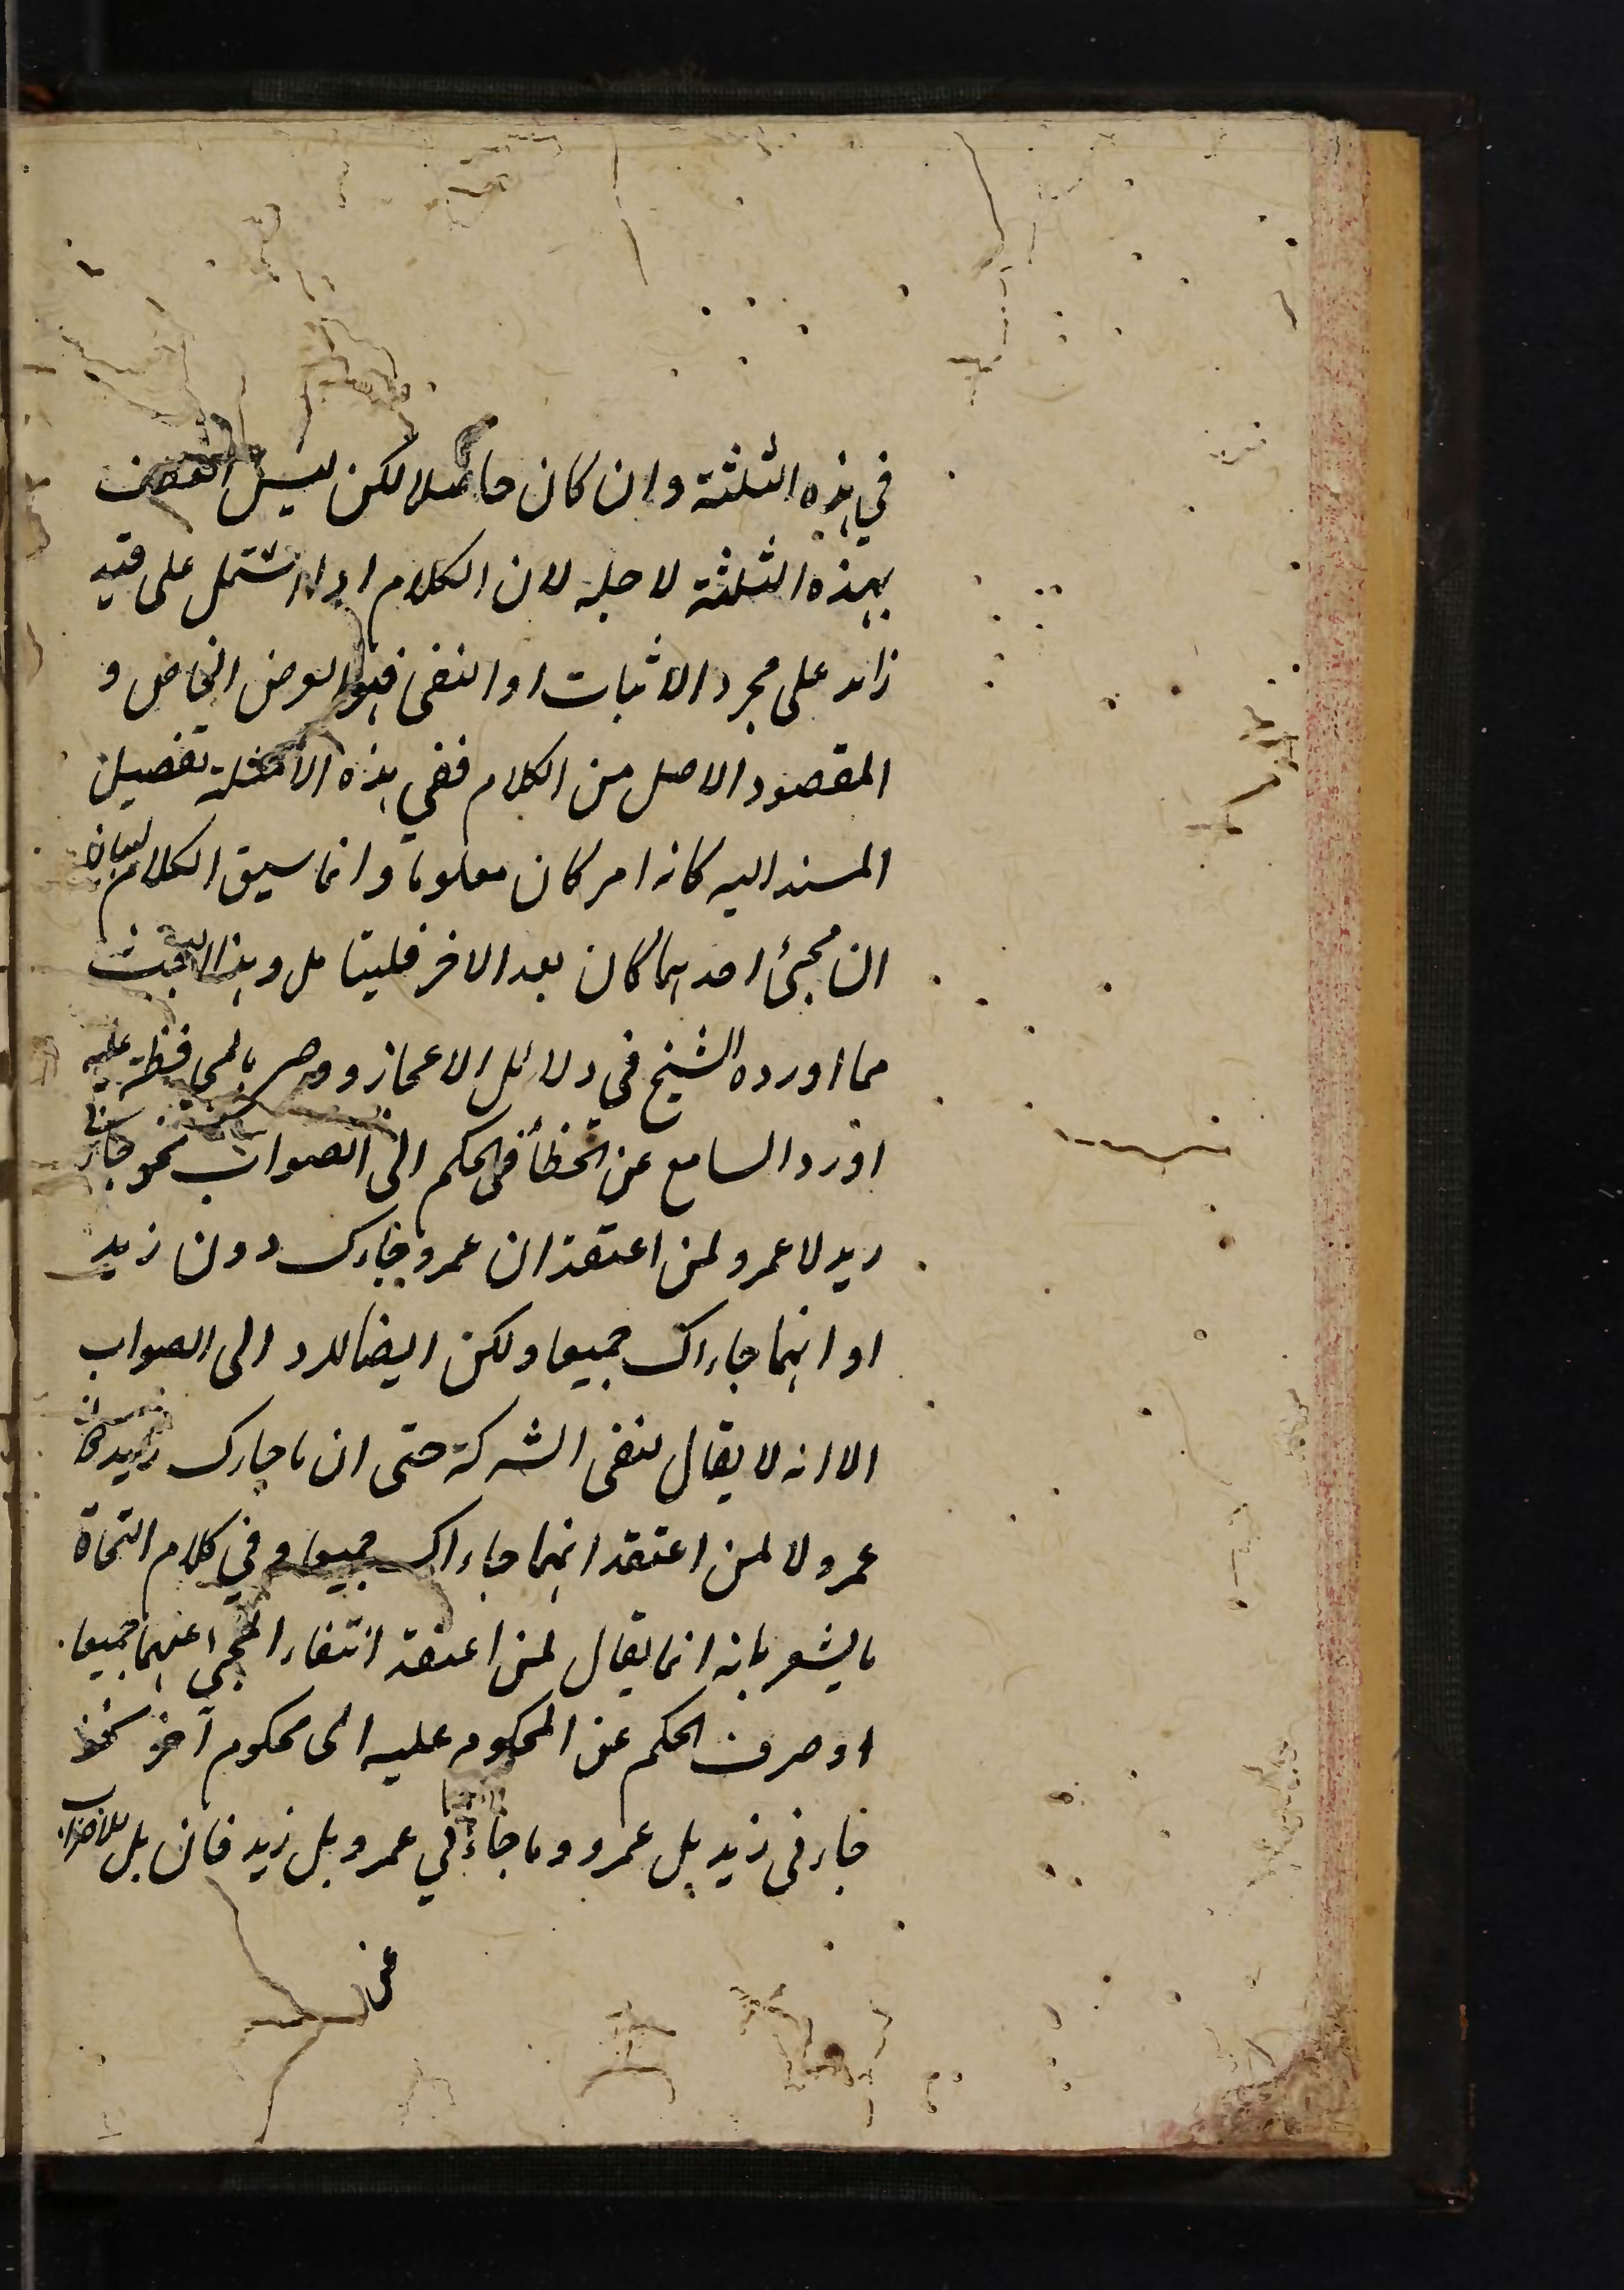 في هذه الثلثة وان كان حاصلا لكن ليس العطف
بهذه الثلثة لاجله لان الكلام اذا اشتمل على قيد
زائد على مجرد الاثبات او النفى فهو الغرض الخاص و
المقصود الاصل من الكلام ففي هذه الامثلة تفصيل
المسند اليه كانه امر كان معلوما وانما سيق الكلام لبيان
ان مجيئ احدهما كان بعد الاخر فليتامل وهذا البحث
مما اورده الشيخ في دلائل الاعجاز ووصى بالمحافظة عليه
اورد السامع عن الخطأ فى الحكم الى الصواب نحو جاءنى
زيد لا عمرو لمن اعتقد ان عمرو جاءك دون زيد
او انهما جاءاك جميعا ولكن ايضا للرد الى الصواب
الا انه لا يقال لنفى الشركة حتى ان ما جاءك زيد لكن
عمرو لا لمن اعتقد انهما جاءاك جميعا وفي كلام النحاة
ما يشعر بانه انما يقال لمن اعتقد انتفاء المجى عنهما جميعا
او صرف الحكم عن المحكوم عليه الى محكوم آخر نحو
جاءنى زيد بل عمرو وما جاءني عمرو بل زيد فان بل للاضراب
عن